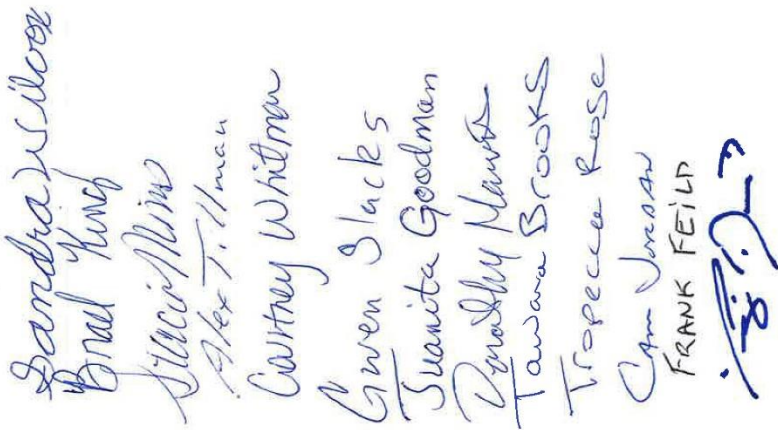 Sandra Wilcox
Brad King
Mims
Alex Tillman
Courtney Whitman
Gwen Slacks
Juanita Goodman
Dorothy
Tawana Brooks
Tropecca Rose
Cam Jordan
FRANK FEILD